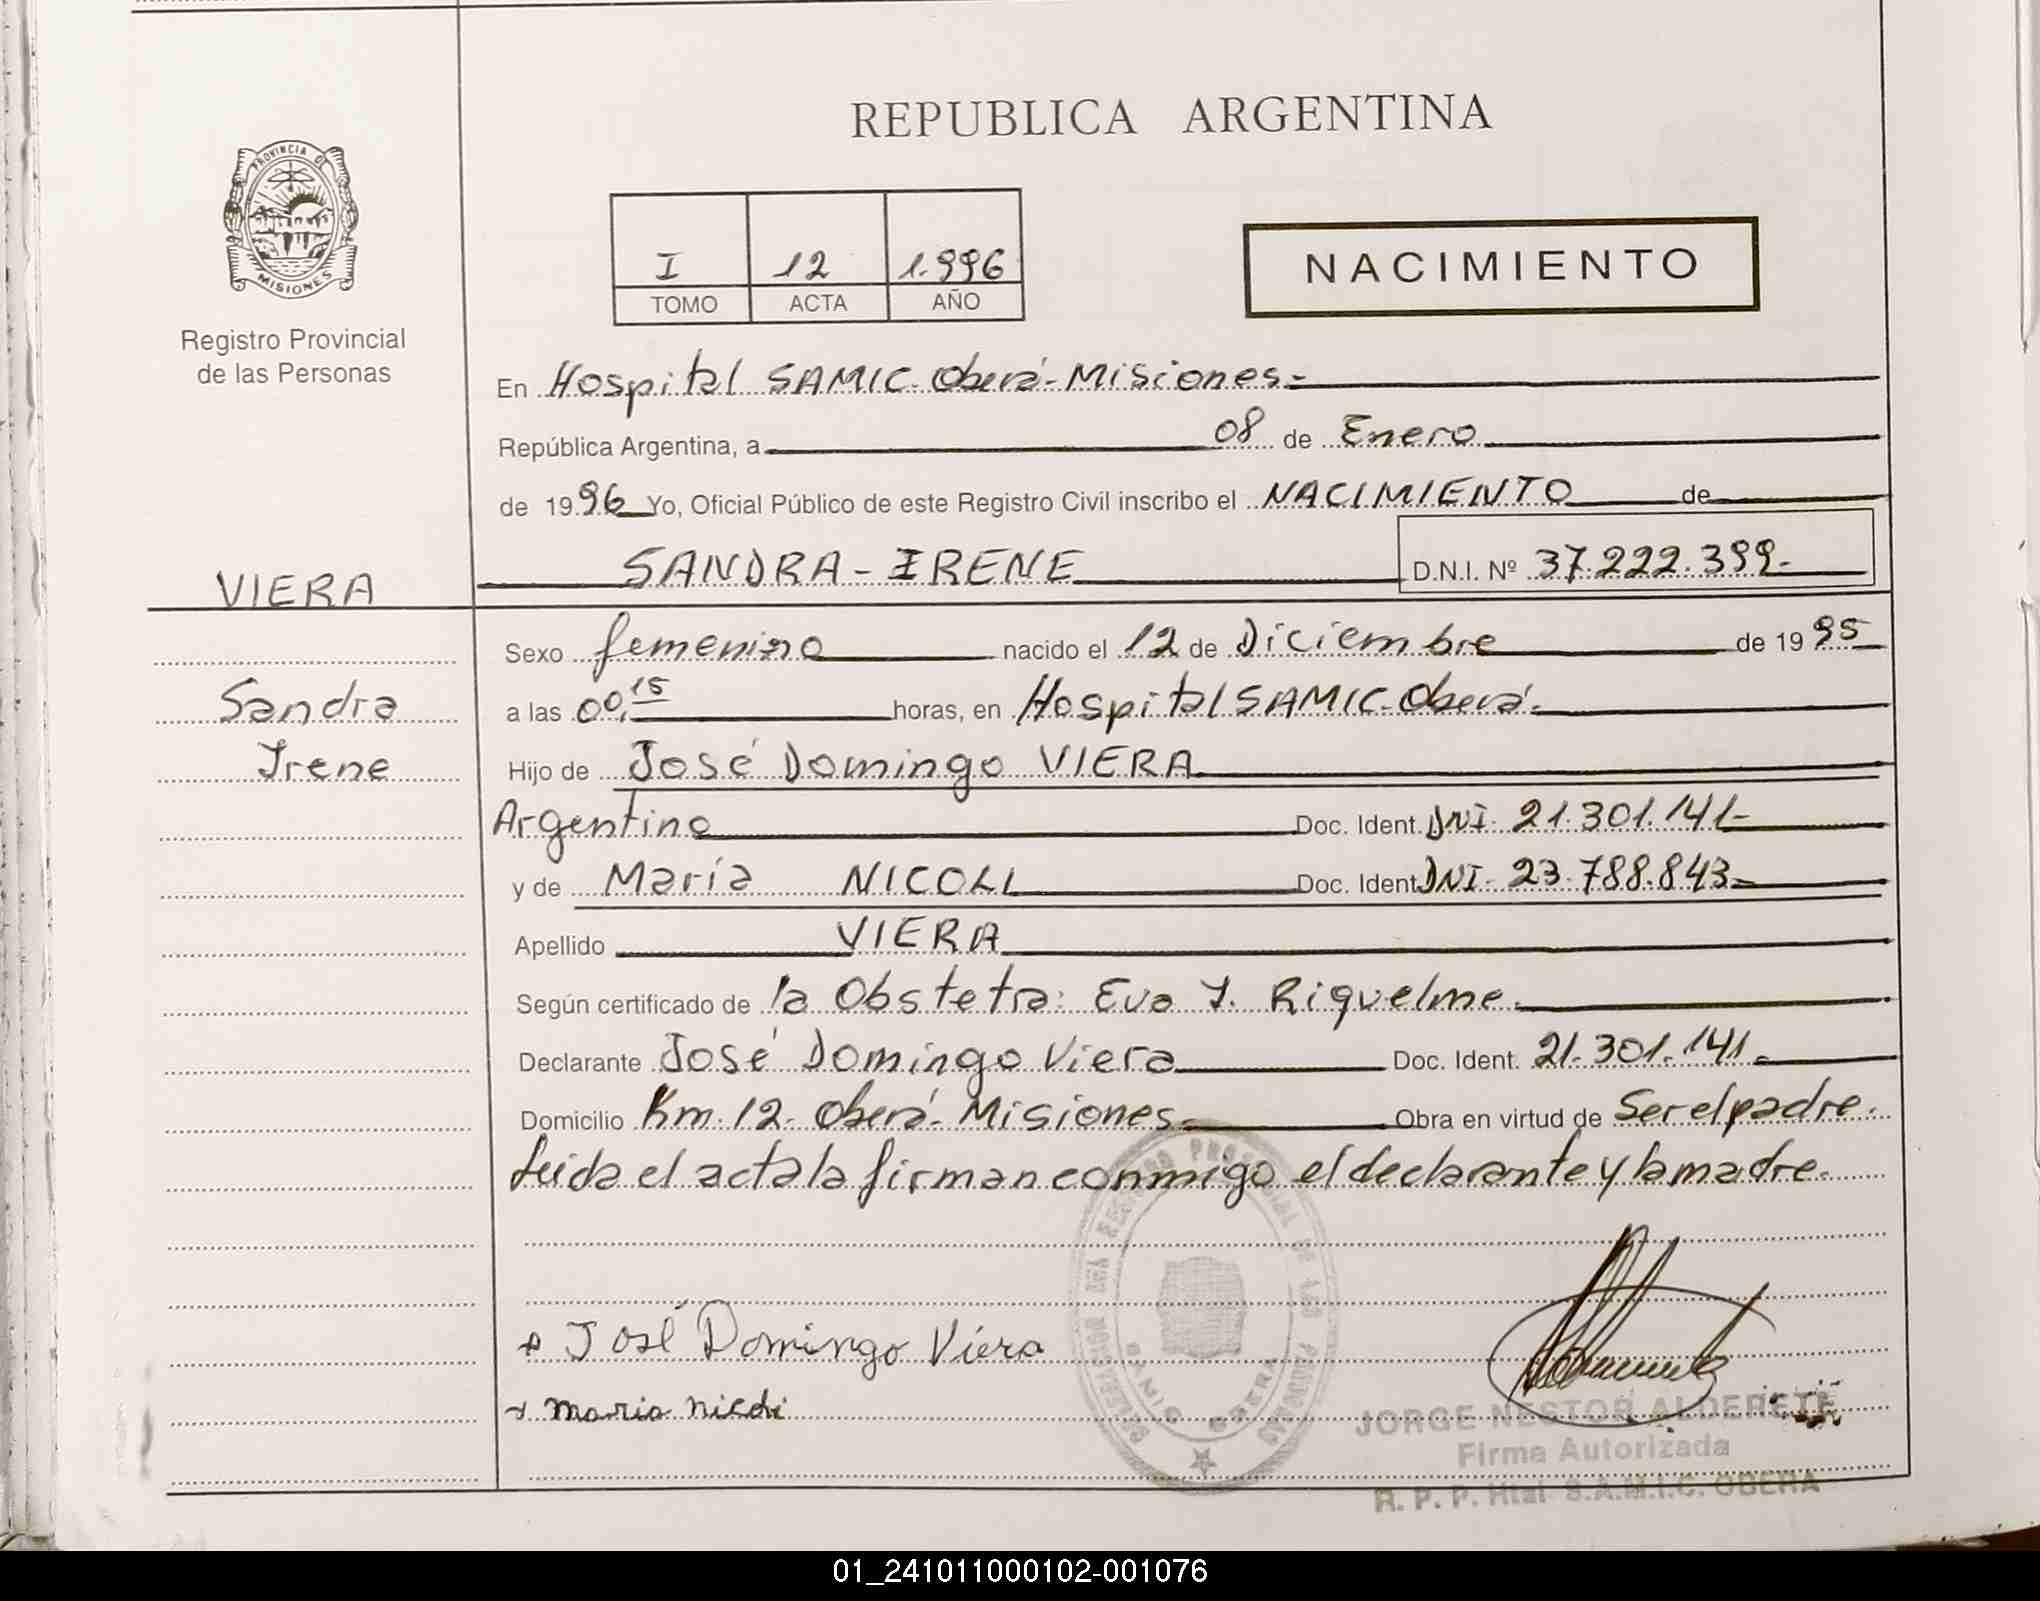 REPUBLICA ARGENTINA
PROVINCIA DE
MISIONES
Registro Provincial
de las Personas
I 12 1.996
TOMO ACTA AÑO
NACIMIENTO
En Hospital SAMIC. Oberá - Misiones.-
República Argentina, a 08 de Enero
de 1996 Yo, Oficial Público de este Registro Civil inscribo el NACIMIENTO de
VIERA SANDRA - IRENE D.N.I. Nº 37.222.399.-
Sexo femenino nacido el 12 de Diciembre de 1995
Sandra a las 00,15 horas, en Hospital SAMIC-Oberá.
Irene Hijo de José Domingo VIERA
Argentino Doc. Ident. DNI. 21.301.141-
y de María NICOLI Doc. Ident. DNI- 23.788.843-
Apellido VIERA
Según certificado de la Obstetra: Eva Y. Riquelme.
Declarante José Domingo Viera Doc. Ident. 21.301.141.-
Domicilio Km. 12. Oberá. Misiones. Obra en virtud de Ser el padre.
Leida el acta la firman conmigo el declarante y la madre.
José Domingo Viera
maria nicoli
JORGE NESTOR ALDERETE
Firma Autorizada
R. P. P. Htal S.A.M.I.C. OBERA
01_241011000102-001076